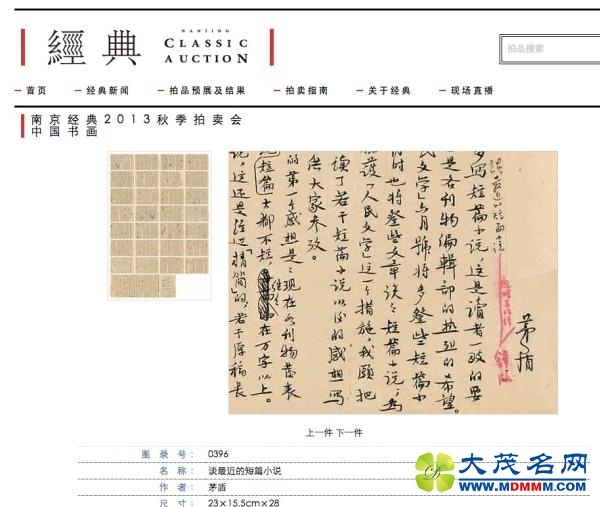 經典
NANJING
CLASSIC
AUCTION
拍品搜索
首页
经典新闻
拍品预展及结果
拍卖指南
关于经典
现场直播
南京经典2013秋季拍卖会
中国书画
谈最近的短篇小说
茅盾
多写短篇小说，这是读者一致的要
是各刊物编辑部的热烈的希望。
民文学》六月號将多登些短篇小
时也将登些文章谈谈短篇小说；为
护《人民文学》这一措施，我愿把
读了若干短篇小说以后的感想写
供大家参考。
的第一个感想是：现在各刊物发表
短篇大都不短，往往在万字以上。
说，这还是经过“精简”的，若干原稿长
上一件 下一件
图 录 号： 0396
名 称： 谈最近的短篇小说
作 者： 茅盾
尺 寸： 23×15.5cm×28
大茂名网
www.MDMMM.com